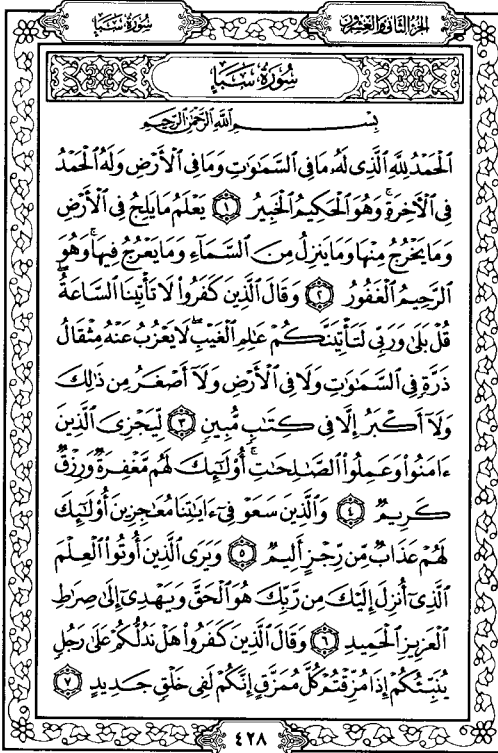 سُورَةُ سَبَإٍ
الجُزْءُ الثَّانِي وَالعِشْرُونَ
سُورَةُ سَبَإٍ
بِسْمِ ٱللَّهِ ٱلرَّحْمَٰنِ ٱلرَّحِيمِ
ٱلْحَمْدُ لِلَّهِ ٱلَّذِى لَهُۥ مَا فِى ٱلسَّمَٰوَٰتِ وَمَا فِى ٱلْأَرْضِ وَلَهُ ٱلْحَمْدُ
فِى ٱلْأَخِرَةِ ۚ وَهُوَ ٱلْحَكِيمُ ٱلْخَبِيرُ ١ يَعْلَمُ مَا يَلِجُ فِى ٱلْأَرْضِ
وَمَا يَخْرُجُ مِنْهَا وَمَا يَنزِلُ مِنَ ٱلسَّمَآءِ وَمَا يَعْرُجُ فِيهَا ۚ وَهُوَ
ٱلرَّحِيمُ ٱلْغَفُورُ ٢ وَقَالَ ٱلَّذِينَ كَفَرُوا۟ لَا تَأْتِينَا ٱلسَّاعَةُ ۖ
قُلْ بَلَىٰ وَرَبِّى لَتَأْتِيَنَّكُمْ عَٰلِمِ ٱلْغَيْبِ ۖ لَا يَعْزُبُ عَنْهُ مِثْقَالُ
ذَرَّةٍ فِى ٱلسَّمَٰوَٰتِ وَلَا فِى ٱلْأَرْضِ وَلَآ أَصْغَرُ مِن ذَٰلِكَ
وَلَآ أَكْبَرُ إِلَّا فِى كِتَٰبٍ مُّبِينٍ ٣ لِّيَجْزِىَ ٱلَّذِينَ
ءَامَنُوا۟ وَعَمِلُوا۟ ٱلصَّٰلِحَٰتِ ۚ أُو۟لَٰٓئِكَ لَهُم مَّغْفِرَةٌ وَرِزْقٌ
كَرِيمٌ ٤ وَٱلَّذِينَ سَعَوْ فِىٓ ءَايَٰتِنَا مُعَٰجِزِينَ أُو۟لَٰٓئِكَ
لَهُمْ عَذَابٌ مِّن رِّجْزٍ أَلِيمٌ ٥ وَيَرَى ٱلَّذِينَ أُوتُوا۟ ٱلْعِلْمَ
ٱلَّذِىٓ أُنزِلَ إِلَيْكَ مِن رَّبِّكَ هُوَ ٱلْحَقَّ وَيَهْدِىٓ إِلَىٰ صِرَٰطِ
ٱلْعَزِيزِ ٱلْحَمِيدِ ٦ وَقَالَ ٱلَّذِينَ كَفَرُوا۟ هَلْ نَدُلُّكُمْ عَلَىٰ رَجُلٍ
يُنَبِّئُكُمْ إِذَا مُزِّقْتُمْ كُلَّ مُمَزَّقٍ إِنَّكُمْ لَفِى خَلْقٍ جَدِيدٍ ٧
٤٢٨